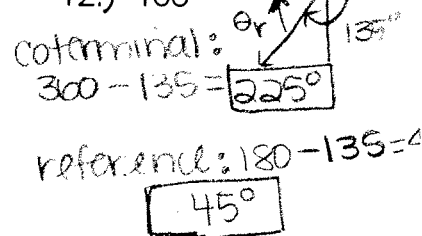 12.)
θr
135°
coterminal:
360 - 135 = 225°
reference: 180 - 135 =
45°